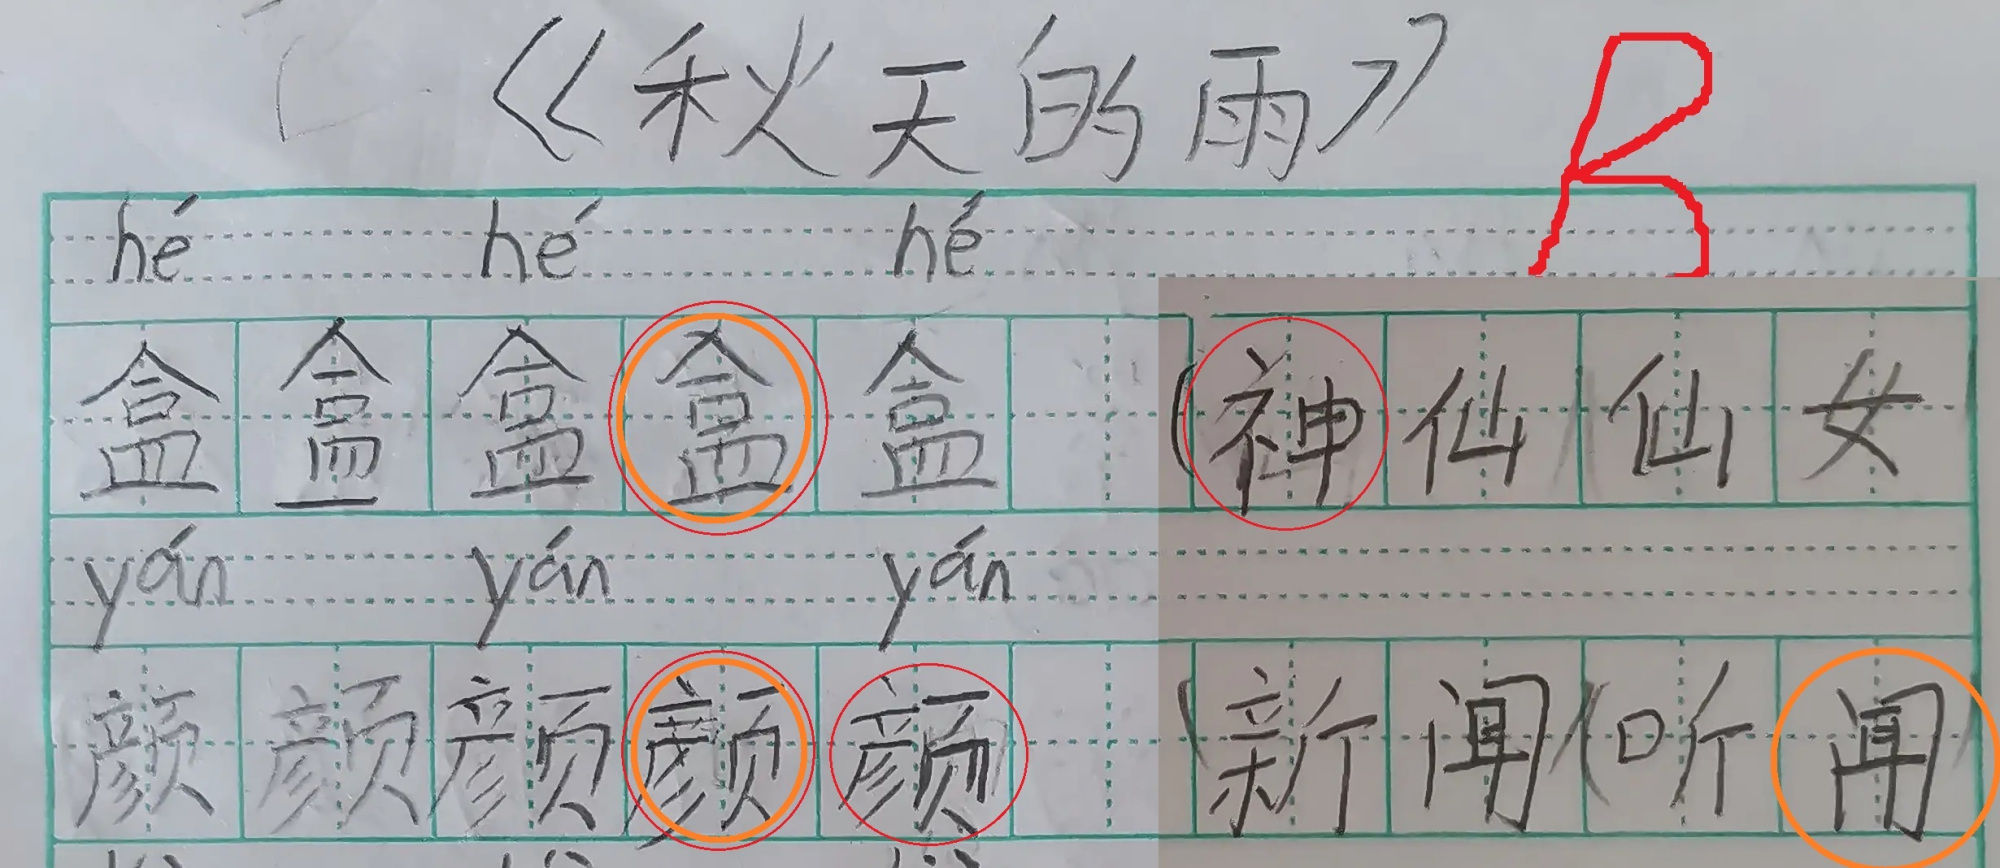 《秋天的雨》
B
hé hé hé
盒 盒 盒 盒 盒 (神仙)(仙女
yán yán yán
颜 颜 颜 颜 颜 (新闻)(听闻)